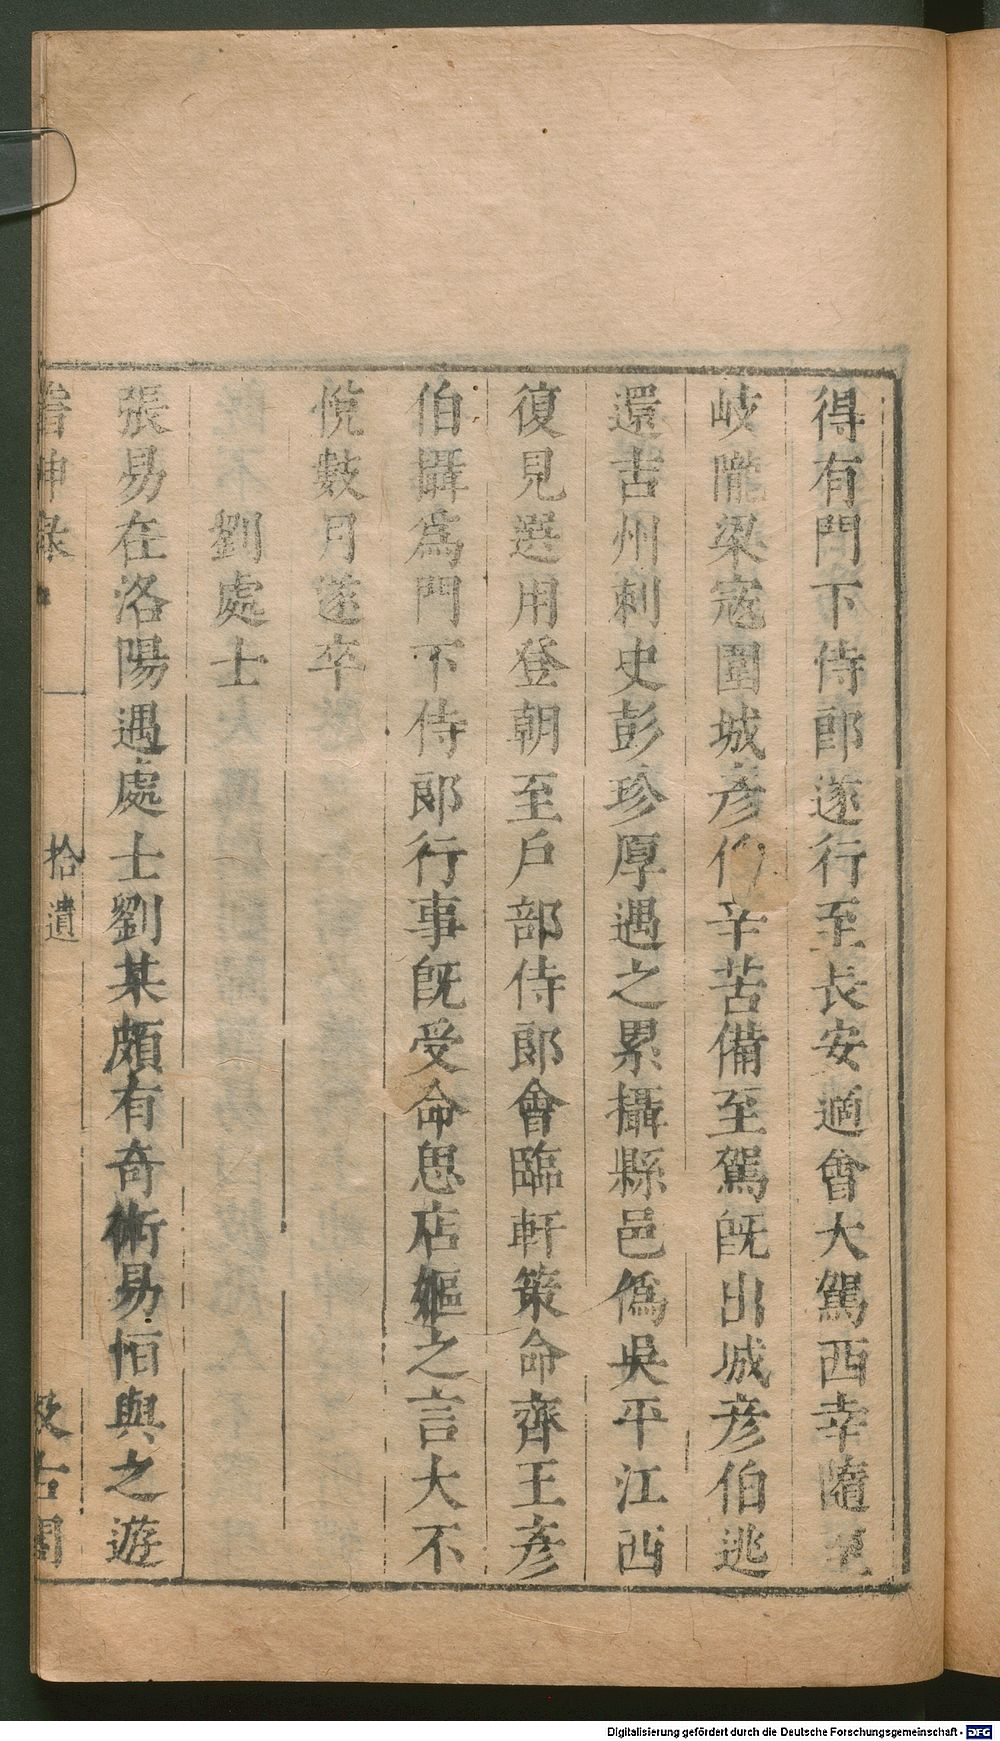 得有門下侍郎遂行至長安適會大駕西幸隨至
岐隴梁寇圍城彥伯辛苦備至駕旣出城彥伯逃
還吉州刺史彭珍厚遇之累攝縣邑僞吳平江西
復見選用登朝至戶部侍郎會臨軒策命齊王彥
伯攝爲門下侍郎行事旣受命思店嫗之言大不
悅數月遂卒
劉處士
張易在洛陽遇處士劉某頗有奇術易恒與之遊
稽神錄
拾遺
汲古閣
Digitalisierung gefördert durch die Deutsche Forschungsgemeinschaft - DFG